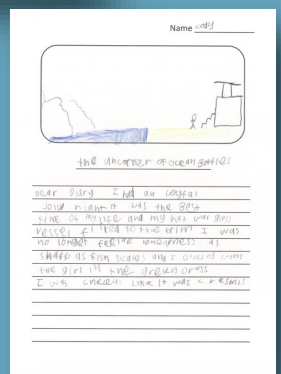 Name cody
the uncorker of ocean bottles
Dear Diary I had an
night it was the best
time of my life and my hat was
vessel filled to the brim I was
no longer feeling loneyness as
sharp as fish scales and I danced with
the girl in the green dress
I was like it was